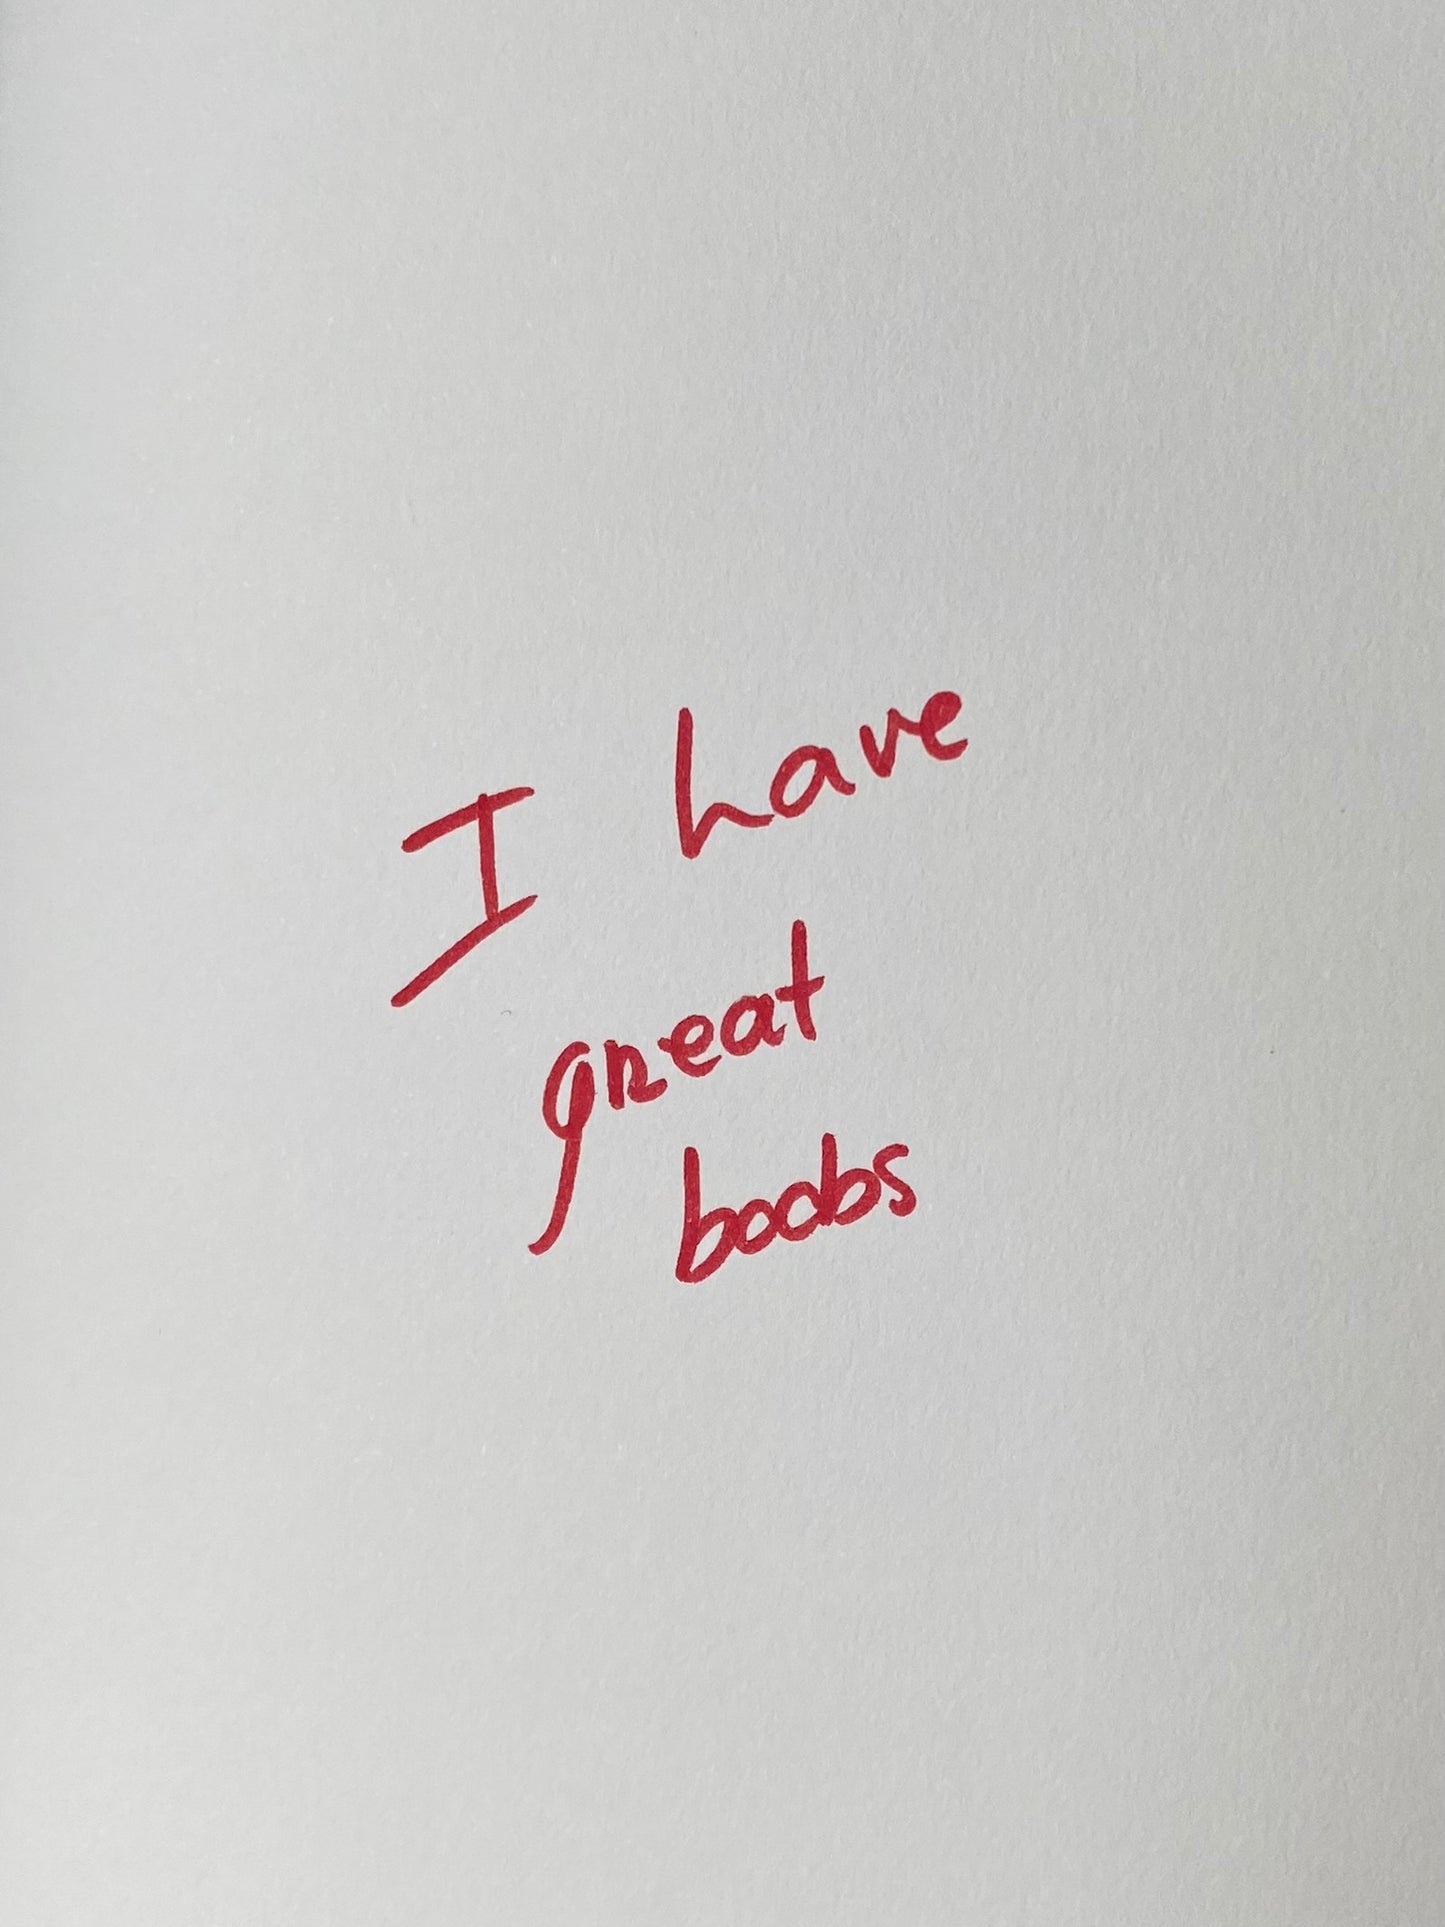 I have
great
boobs